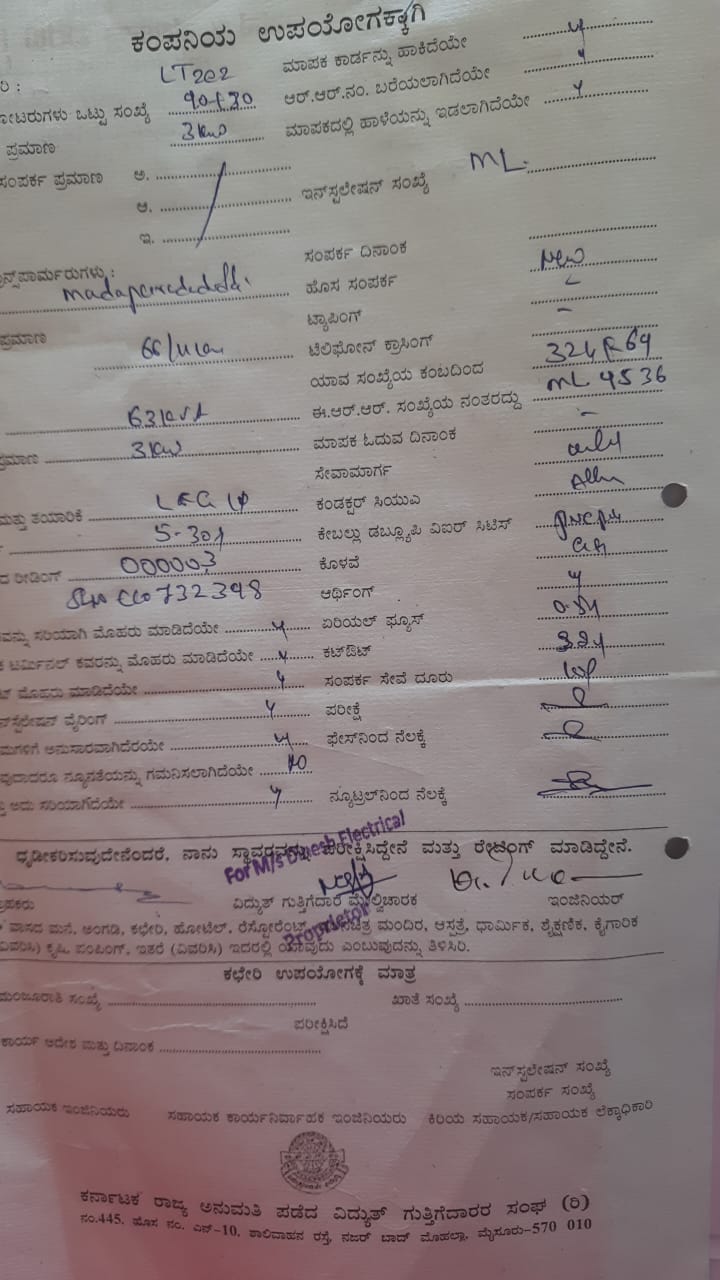 ಕಂಪನಿಯ ಉಪಯೋಗಕ್ಕಾಗಿ
ರಿ : LT2a2 ಮಾಪಕ ಕಾರ್ಡನ್ನು ಹಾಕಿದೆಯೇ y
ೋಟರುಗಳು ಒಟ್ಟು ಸಂಖ್ಯೆ ಆರ್.ಆರ್.ನಂ. ಬರೆಯಲಾಗಿದೆಯೇ y
ಪ್ರಮಾಣ 3kw ಮಾಪಕದಲ್ಲಿ ಹಾಳೆಯನ್ನು ಇಡಲಾಗಿದೆಯೇ y
ಸಂಪರ್ಕ ಪ್ರಮಾಣ ಅ.
ಆ. ಇನ್‌ಸ್ಪಲೇಷನ್ ಸಂಖ್ಯೆ ML.
ಇ.
ಸಂಪರ್ಕ ದಿನಾಂಕ
ನ್ಸ್‌ಫಾರ್ಮರುಗಳು : ಹೊಸ ಸಂಪರ್ಕ New
ಟ್ಯಾಪಿಂಗ್ -
ಪ್ರಮಾಣ 66/11kv ಟೆಲಿಫೋನ್ ಕ್ರಾಸಿಂಗ್ -
ಯಾವ ಸಂಖ್ಯೆಯ ಕಂಬದಿಂದ
63kva ಈ.ಆರ್.ಆರ್. ಸಂಖ್ಯೆಯ ನಂತರದ್ದು ML 4536
ಪ್ರಮಾಣ 3kw ಮಾಪಕ ಓದುವ ದಿನಾಂಕ -
ಸೇವಾಮಾರ್ಗ
ಮತ್ತು ತಯಾರಿಕೆ ಕಂಡಕ್ಟರ್ ಸಿಯುಎ
5-30A ಕೇಬಲ್ಲು ಡಬ್ಲ್ಯೂಪಿ ವಿಐರ್ ಸಿಟಿಸ್
ದ ರೀಡಿಂಗ್ 000003 ಕೊಳವೆ
732398 ಆರ್ಥಿಂಗ್ y
ವನ್ನು ಸರಿಯಾಗಿ ಮೊಹರು ಮಾಡಿದೆಯೇ y ಏರಿಯಲ್ ಫ್ಯೂಸ್
ಟರ್ಮಿನಲ್ ಕವರನ್ನು ಮೊಹರು ಮಾಡಿದೆಯೇ y ಕಟ್‌ಔಟ್
ಟ್ ಮೊಹರು ಮಾಡಿದೆಯೇ y ಸಂಪರ್ಕ ಸೇವೆ ದೂರು
ನ್‌ಸ್ಪಲೇಷನ್ ವೈರಿಂಗ್ y ಪರೀಕ್ಷೆ
ಮಗಳಿಗೆ ಅನುಸಾರವಾಗಿದೆರಯೇ y ಫೇಸ್‌ನಿಂದ ನೆಲಕ್ಕೆ
ವುದಾದರೂ ನ್ಯೂನತೆಯನ್ನು ಗಮನಿಸಲಾಗಿದೆಯೇ NO
ಅದು ಸರಿಯಾಗಿದೆಯೇ y ನ್ಯೂಟ್ರಲ್‌ನಿಂದ ನೆಲಕ್ಕೆ
For M/s Dinesh Electrical
ಧೃಡೀಕರಿಸುವುದೇನೆಂದರೆ, ನಾನು ಸ್ಥಾವರವನ್ನು ಪರೀಕ್ಷಿಸಿದ್ದೇನೆ ಮತ್ತು ರೇಟಿಂಗ್ ಮಾಡಿದ್ದೇನೆ.
ಹಕರು ವಿದ್ಯುತ್ ಗುತ್ತಿಗೆದಾರ ಮೇಲ್ವಿಚಾರಕ ಇಂಜಿನಿಯರ್
Proprietor
ವಾಸದ ಮನೆ, ಅಂಗಡಿ, ಕಛೇರಿ, ಹೋಟೆಲ್, ರೆಸ್ಟೋರೆಂಟ್, ಮಂದಿರ, ಆಸ್ಪತ್ರೆ, ಧಾರ್ಮಿಕ, ಶೈಕ್ಷಣಿಕ, ಕೈಗಾರಿಕ
ವಿವರಿಸಿ) ಕೃಷಿ, ಪಂಪಿಂಗ್, ಇತರೆ (ವಿವರಿಸಿ) ಇದರಲ್ಲಿ ಯಾವುದು ಎಂಬುವುದನ್ನು ತಿಳಿಸಿರಿ.
ಕಛೇರಿ ಉಪಯೋಗಕ್ಕೆ ಮಾತ್ರ
ಮಂಜೂರಾತಿ ಸಂಖ್ಯೆ ಖಾತೆ ಸಂಖ್ಯೆ
ಪರೀಕ್ಷಿಸಿದೆ
ಕಾರ್ಯ ಆದೇಶ ಮತ್ತು ದಿನಾಂಕ
ಇನ್‌ಸ್ಪಲೇಷನ್ ಸಂಖ್ಯೆ
ಸಂಪರ್ಕ ಸಂಖ್ಯೆ
ಸಹಾಯಕ ಇಂಜಿನಿಯರು ಸಹಾಯಕ ಕಾರ್ಯನಿರ್ವಾಹಕ ಇಂಜಿನಿಯರು ಕಿರಿಯ ಸಹಾಯಕ/ಸಹಾಯಕ ಲೆಕ್ಕಾಧಿಕಾರಿ
ಕರ್ನಾಟಕ ರಾಜ್ಯ ಅನುಮತಿ ಪಡೆದ ವಿದ್ಯುತ್ ಗುತ್ತಿಗೆದಾರರ ಸಂಘ (ರಿ)
ನಂ.445, ಹೊಸ ನಂ. ಎನ್-10, ಶಾಲಿವಾಹನ ರಸ್ತೆ, ನಜರ್ ಬಾದ್ ಮೊಹಲ್ಲಾ, ಮೈಸೂರು-570 010